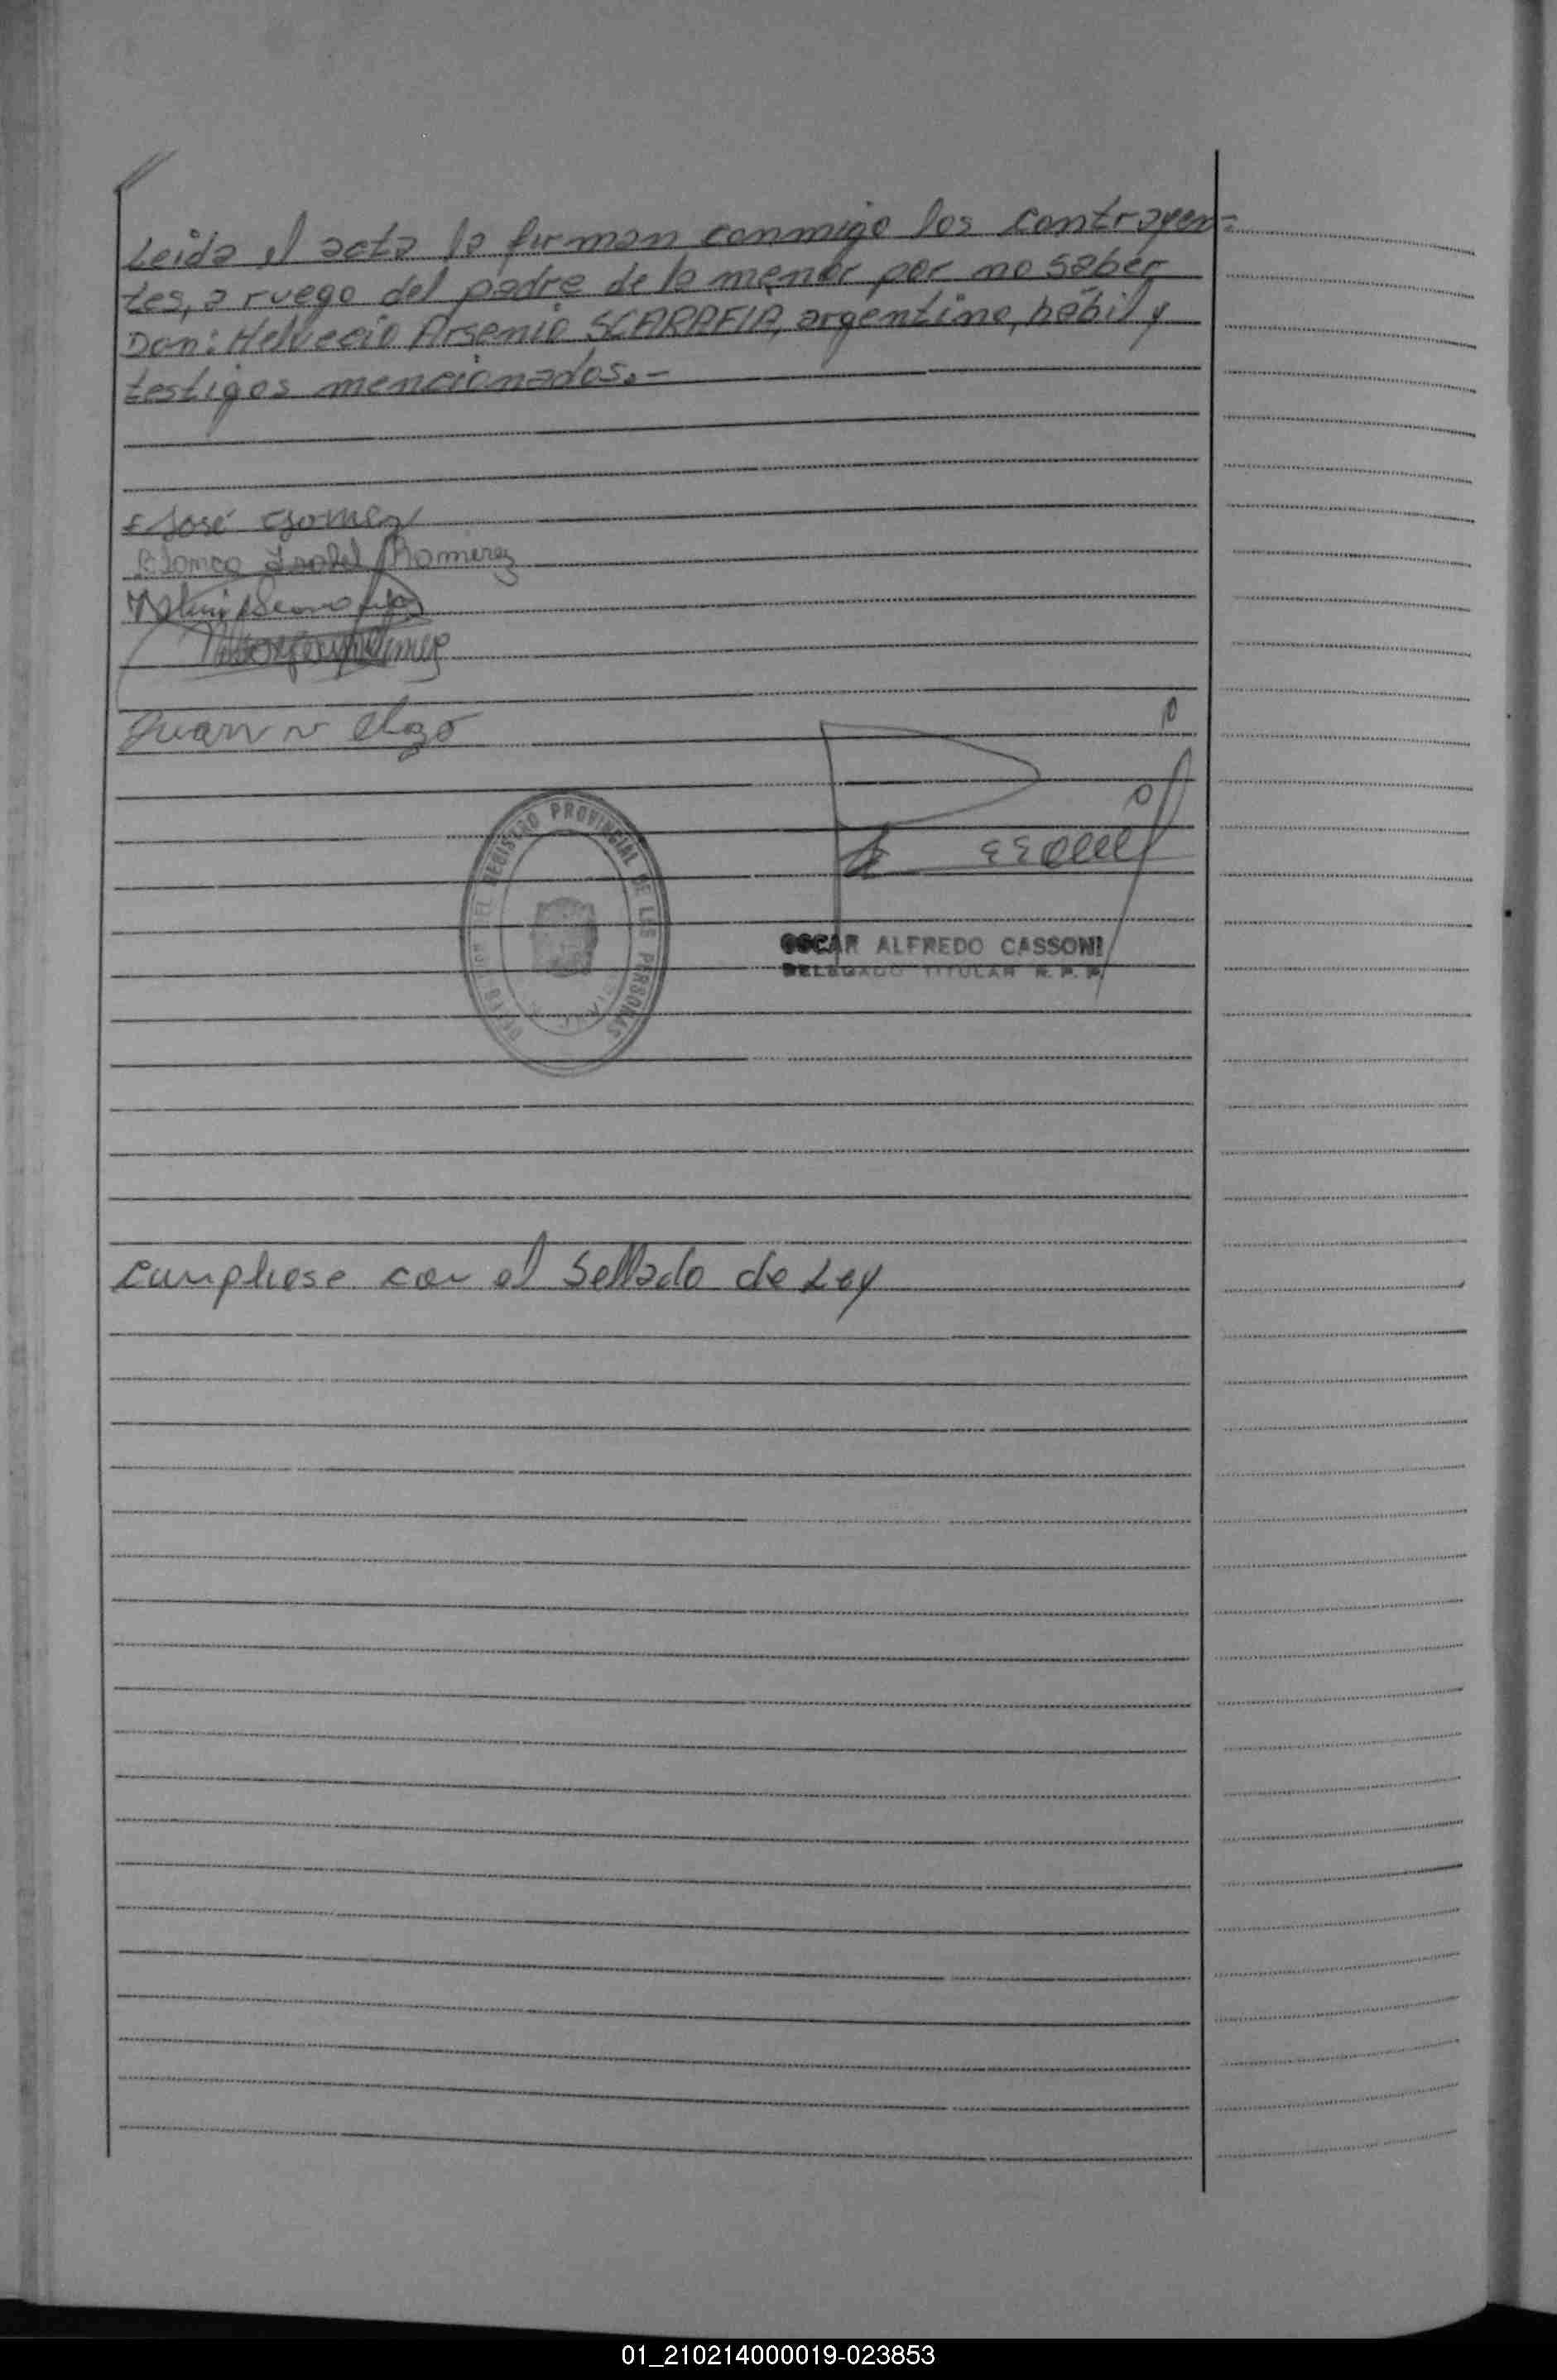 Leida el acta la firman conmigo los contrayen=
tes, a ruego del padre de la menor por no saber
Don: Helvecio Arsenio SCARAFIA, argentino, hábil y
testigos mencionados.-
José Gomez
Blanca Isabel Ramirez
Juan N
REGISTRO PROVINCIAL DE LAS PERSONAS
OSCAR ALFREDO CASSONI
DELEGADO TITULAR R. P. P.
Cumpliese con el Sellado de Ley
01_210214000019-023853